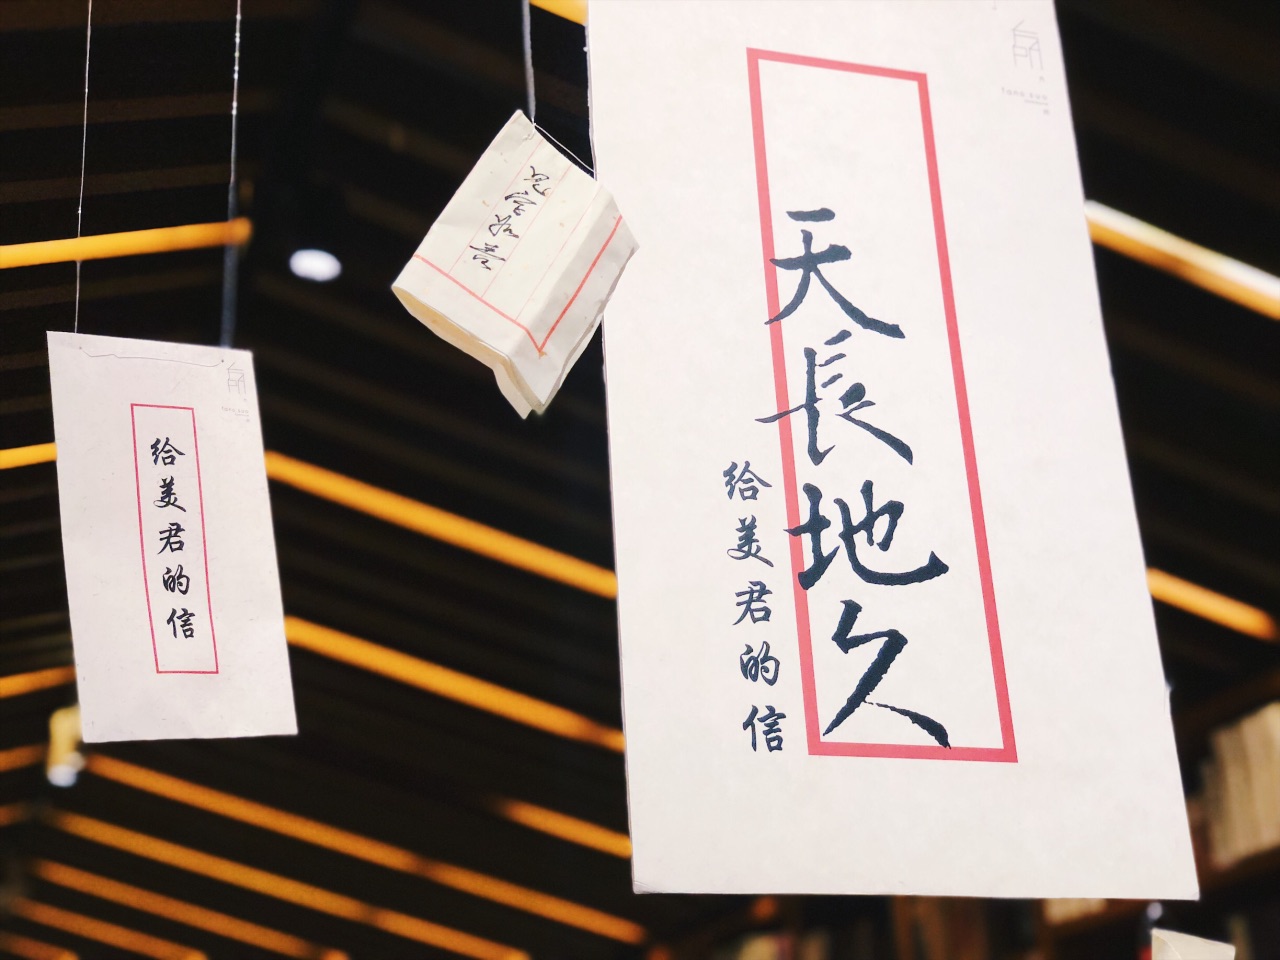 天長地久
给美君的信
给美君的信